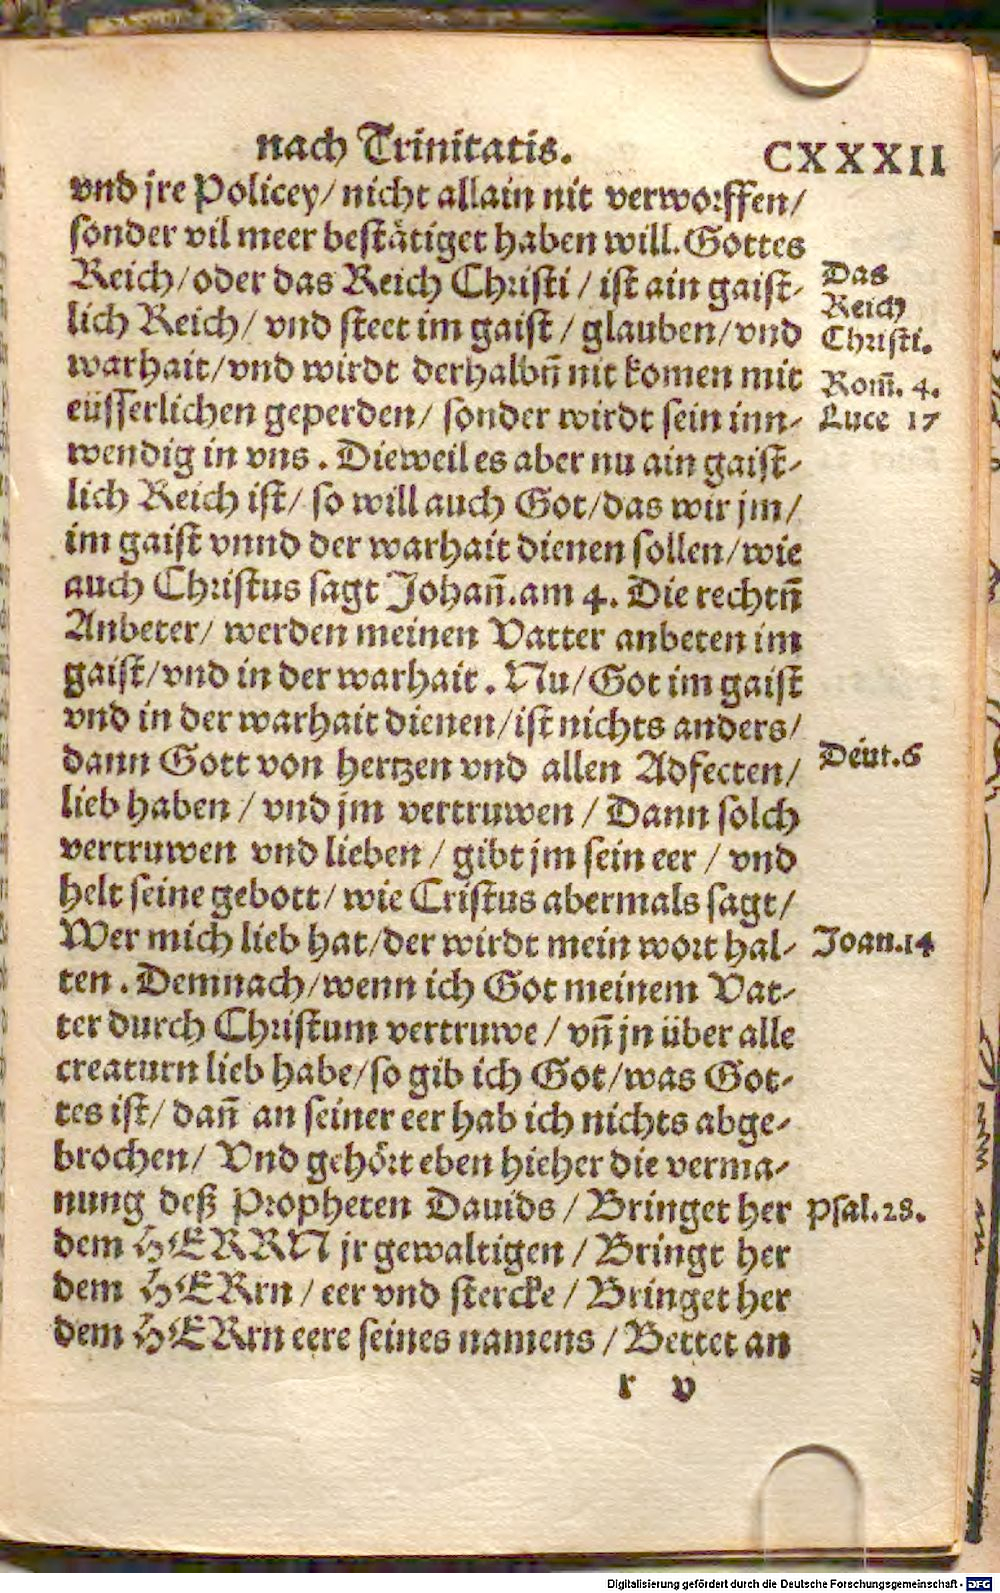 nach Trinitatis. CXXXII
vnd jre Policey/ nicht allain nit verworffen/
sonder vil meer bestätiget haben will. Gottes
Reich/oder das Reich Christi / ist ain gaist-
lich Reich/ vnd steet im gaist / glauben/vnd
warhait/vnd wirdt derhalbñ nit komen mit
eüsserlichen geperden/ sonder wirdt sein inn-
wendig in vns . Dieweil es aber nu ain gaist-
lich Reich ist/ so will auch Got/das wir jm/
im gaist vnnd der warhait dienen sollen/wie
auch Christus sagt Johañ.am 4. Die rechtñ
Anbeter/ werden meinen Vatter anbeten im
gaist/vnd in der warhait . Nu/Got im gaist
vnd in der warhait dienen/ist nichts anders/
dann Gott von hertzen vnd allen Adfecten/
lieb haben / vnd jm vertruwen / Dann solch
vertruwen vnd lieben / gibt jm sein eer / vnd
helt seine gebott/ wie Cristus abermals sagt/
Wer mich lieb hat/der wirdt mein wort hal-
ten . Demnach/wenn ich Got meinem Vat-
ter durch Christum vertruwe / vñ jn über alle
creaturn lieb habe/so gib ich Got/was Got-
tes ist/ dañ an seiner eer hab ich nichts abge-
brochen/ Vnd gehört eben hieher die verma-
nung deß Propheten Dauids / Bringet her
dem HERRN jr gewaltigen / Bringt her
dem HERrn / eer vnd stercke / Bringet her
dem HERrn eere seines namens / Bettet an
r v
Das
Reich
Christi.
Rom̃. 4.
Luce 17
Deüt.6
Joan.14
Psal.28.
Digitalisierung gefördert durch die Deutsche Forschungsgemeinschaft - DFG